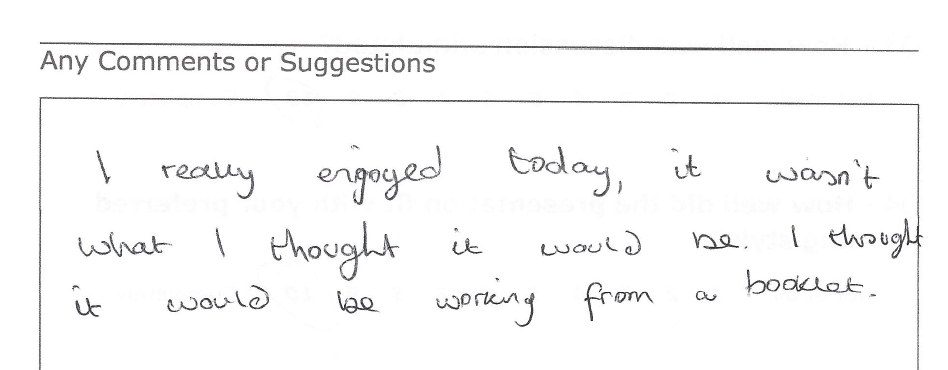 Any Comments or Suggestions
I really enjoyed today, it wasn't
what I thought it would be. I thought
it would be working from a booklet.